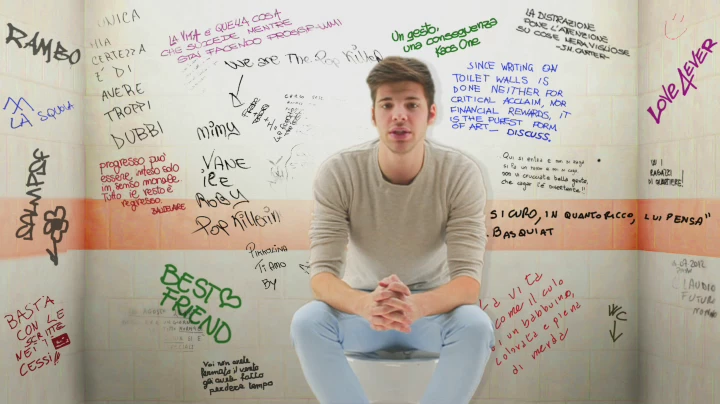 RAMBO
LA SQUOLA
UNICA
MIA
CERTEZZA
E' DI
AVERE
TROPPI
DUBBI
LA VITA E QUELLA COSA
CHE SUCCEDE MENTRE
STAI FACENDO
We are The Pop Killer
Un gesto,
una conseguenza
Kaos One
LA DISTRAZIONE
PONE L'ATTENZIONE
SU COSE MERAVIGLIOSE
SINCE WRITING ON
TOILET WALLS IS
DONE NEITHER FOR
CRITICAL ACCLAIM, NOR
FINANCIAL REWARDS, IT
IS THE PUREST FORM
OF ART — DISCUSS.
LOVE4EVER
MIMY
VANE
ICE
ROBY
Pop Killer
progresso può
essere, inteso solo
in senso morale.
Tutto il resto è
regresso.
Qui si entra e non si caga
che cagar s'è
SICURO, IN QUANTO RICCO, LUI PENSA"
BASQUIAT
RAGAZZI
DI QUARTIERE!
TI AMO
BY
BEST
FRIEND
BASTA
CON LE
SCRITTE
NEI
CESSI
Voi non avete
fermato il vento
gli avete fatto
perdere tempo
La vita
come il culo
di un babbuino,
colorata e piena
di merda
WC
CLAUDIO
FUTURO